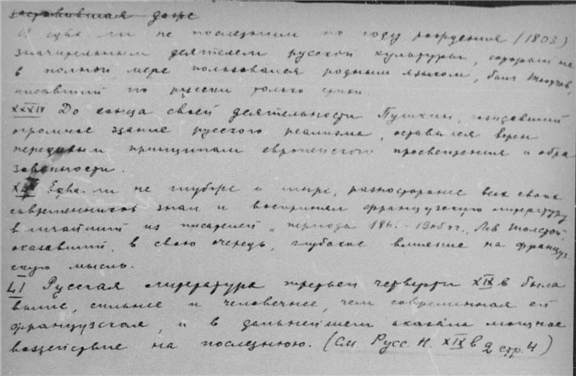 заставившая даже
И едва ли не последним по году рождения (1803)
значительным деятелем русской культуры, который не
в полной мере пользовался родным языком, был Тютчев,
писавший по русски только стихи
XXXIV До конца своей деятельности Пушкин, создавший
огромное здание русского реализма, оставался верен
передовым принципам европейского просвещения и обра
зованности.
Едва ли не глубже и шире, разностороннее всех своих
современников знал и воспринял французскую литературу
величайший из писателей „периода 186 - 1905 гг. Лев Толстой,
оказавший, в свою очередь, глубокое влияние на француз
скую мысль.
LI Русская литература третьей четверти XIX в была
выше, сильнее и человечнее, чем современная ей
французская, и в дальнейшем оказала мощное
воздействие на последнюю. (См. Русс. Н. XIX в 2 стр. 4)